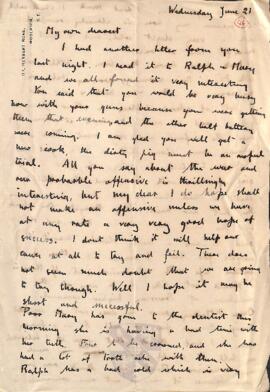 Wednesday June 21
My own dearest
I had another letter from you
last night. I read it to Ralph & Mary
and we all found it very interesting
You said that you would be very busy
now with your guns because you were getting
them that evening and the other half battery
were coming. I am glad you will get a
new cook, the dirty pig must be an awful
trial. All you say about the war and
our probable offensive is thrillingly
interesting, but my dear I do hope shall
not make an offensive unless we have
at any rate a very very good hope of
success. I dont think it will help our
cause at all to try and fail. There does
not seem much doubt that we are going
to try though. Well I hope it may be
short and successful.
Poor Mary has gone to the dentist this
morning she is having a bad time with
her teeth. to be crowned, and she has
had a lot of tooth ache with them.
Ralph has a bad cold which is very